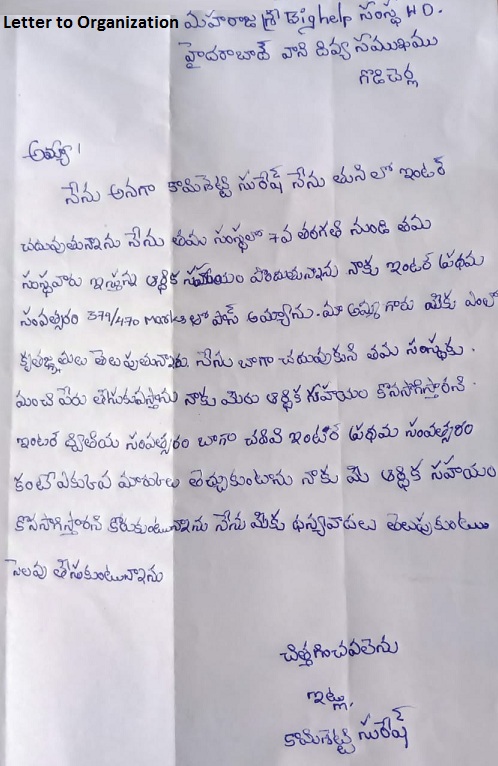 Letter to Organization
మహారాజశ్రీ Bighelp సంస్థ HD.
హైదరాబాద్ వారి దివ్య సముఖము
గొడిచెర్ల
అమ్మా!
నేను అనగా కామిశెట్టి సురేష్ నేను తుని లో ఇంటర్
చదువుతున్నాను నేను తమ సంస్థలో 7వ తరగతి నుండి తమ
సంస్థవారు ఇస్తున్న ఆర్థిక సహాయం పొందుతున్నాను నాకు ఇంటర్ ప్రథమ
సంవత్సరం 379/470 marks లో పాస్ అయ్యాను. మా అమ్మ గారు మీకు ఎంతో
కృతజ్ఞతలు తెలుపుతున్నారు. నేను బాగా చదువుకుని తమ సంస్థకు.
మంచి పేరు తీసుకువస్తాను నాకు మీరు ఆర్థిక సహాయం కొనసాగిస్తారని.
ఇంటర్ ద్వితీయ సంవత్సరం బాగా చదివి ఇంటర్ ప్రథమ సంవత్సరం
కంటే ఎక్కువ మార్కులు తెచ్చుకుంటాను నాకు మీ ఆర్థిక సహాయం
కొనసాగిస్తారని కోరుకుంటున్నాను నేను మీకు ధన్యవాదాలు తెలుపుకుంటూ
సెలవు తీసుకుంటున్నాను
చిత్తగించవలెను
ఇట్లు,
కామిశెట్టి సురేష్